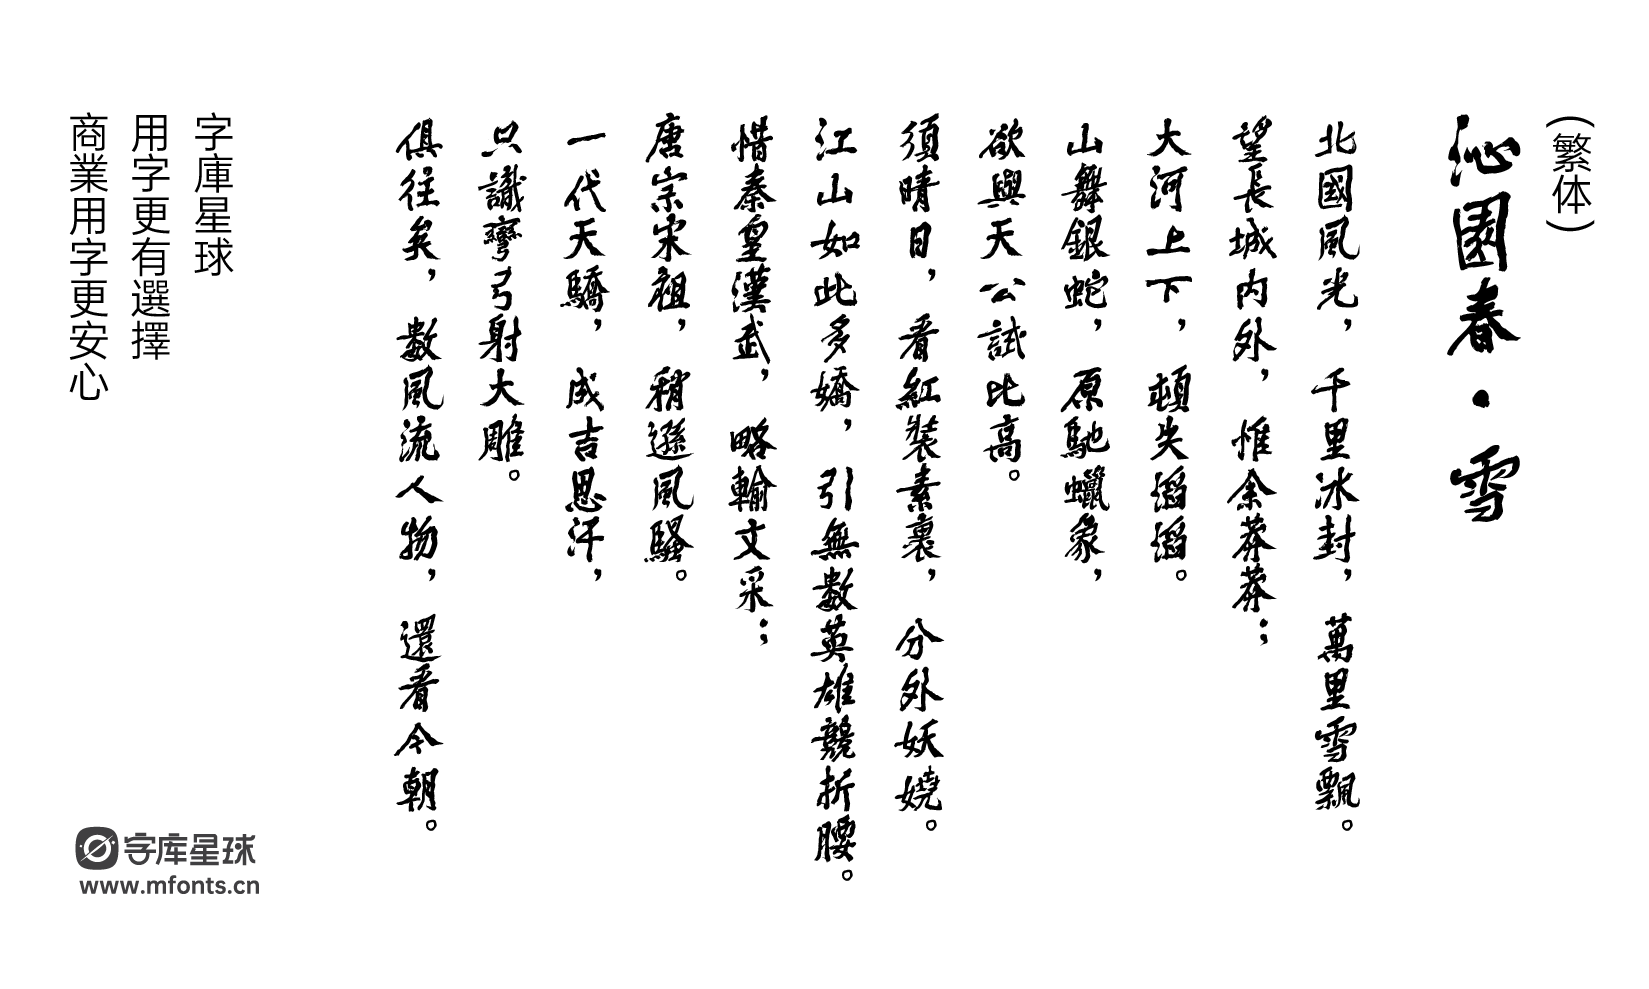 （繁体）
沁園春·雪
北國風光，千里冰封，萬里雪飄。
望長城内外，惟余莽莽；
大河上下，頓失滔滔。
山舞銀蛇，原馳蠟象，
欲與天公試比高。
須晴日，看紅裝素裹，分外妖嬈。
江山如此多嬌，引無數英雄競折腰。
惜秦皇漢武，略輸文采；
唐宗宋祖，稍遜風騷。
一代天驕，成吉思汗，
只識彎弓射大雕。
俱往矣，數風流人物，還看今朝。
字庫星球
用字更有選擇
商業用字更安心
字库星球
www.mfonts.cn